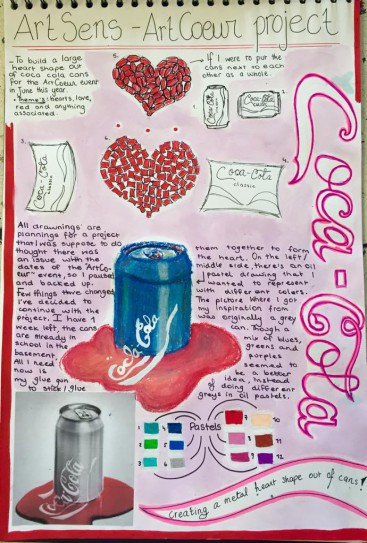 ArtSens - ArtCoeur project
- To build a large
heart shape out
of coca cola cans
for the ArtCoeur event
in June this year.
• Theme's: hearts, love,
red and anything
associated
5.
- If I were to put the
cans next to each
other as a whole.
1.
2.
Coca-Cola
3.
Coca-Cola
classic
6.
4.
Coca-Cola
classic
Coca-Cola
All drawnings are
plannings for a project
that I was suppose to do
thought there was
an issue with the
dates of the ArtCo-
eur" event, so I paused
and backed up.
Few things have changed
I've decided to
continue with the
project. I have 1
week left, the cans
are already in
school in the
basement.
All I need
now is
my glue gun
to stick/glue
them together to form
the heart. On the left/
middle side, there's an oil
pastel drawing that I
wanted to represent
with different colors.
The picture where I got
my inspiration from
was originally a grey
can. Though a
mix of blues,
greens and
purples
seemed to
be a better
idea, instead
of doing different
greys in oil pastels.
Coca-Cola
Coca-Cola
Pastels
1
2
3
4
5
6
7
8
9
10
11
12
creating a metal heart shape out of cans!